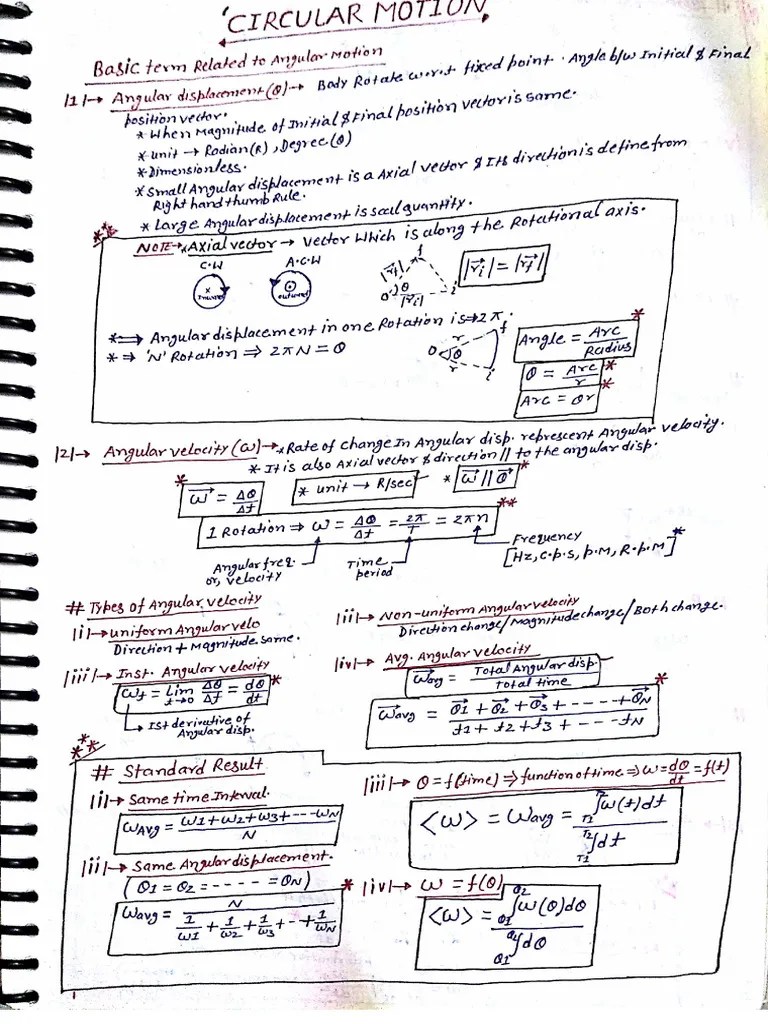 'CIRCULAR MOTION'
Basic term Related to Angular Motion
|1|→ Angular displacement(θ)→ Body Rotate w.r.t fixed point. Angle b/w Initial & Final
position vector.
* When Magnitude of Initial & Final position vector is same.
* unit → Radian(R), Degree(θ)
* Dimensionless.
* Small Angular displacement is a Axial vector & Its direction is define from
Right hand thumb Rule.
* Large Angular displacement is scal quantity.
NOTE→ *Axial vector → Vector Which is along the Rotational axis.
C.W A.C.W
|r⃗f| f |r⃗i| = |r⃗f|
Inward outward
O θ |r⃗i| i
*⇒ Angular displacement in one Rotation is ⇒ 2π.
*⇒ 'N' Rotation ⇒ 2πN = θ
O θ r r f i
Angle = Arc/Radius *
θ = Arc/r *
Arc = θr *
|2|→ Angular velocity (ω)→ *Rate of change In Angular disp. represcent Angular velocity.
* It is also Axial vector & direction // to the angular disp.
* ω⃗ = Δθ/Δt * unit → R/sec * ω⃗ // θ⃗ *
1 Rotation ⇒ ω = Δθ/Δt = 2π/T = 2πn **
Angular freq. or, velocity
Time period
Frequency
[Hz, C.p.S, p.M, R.p.M] *
# Types of Angular velocity
|i|→ uniform Angular velo
Direction + Magnitude. Same.
|ii|→ Non-uniform Angular velocity
Direction change/Magnitude change/Both change.
|iii|→ Inst. Angular velocity
ωt = Lim t→0 Δθ/Δt = dθ/dt *
→ Ist derivative of
Angular disp.
|iv|→ Avg. Angular velocity
ω⃗avg = Total Angular disp./Total time
ω⃗avg = θ⃗1 + θ⃗2 + θ⃗3 + - - - - + θ⃗N / t1 + t2 + t3 + - - - tN *
# Standard Result
|i|→ Same time Interval.
ωAvg = ω1+ω2+ω3+---ωN / N
|ii|→ Same Angular displacement.
(θ1 = θ2 = - - - - = θN)
ωavg = N / 1/ω1 + 1/ω2 + 1/ω3 + - + 1/ωN *
|iii|→ θ = f(time) ⇒ function of time ⇒ ω = dθ/dt = f(t)
<ω> = ωavg = T1∫ω(t)dt / T1∫T2 dt
|iv|→ ω = f(θ)
<ω> = θ1∫θ2 ω(θ)dθ / θ1∫ dθ